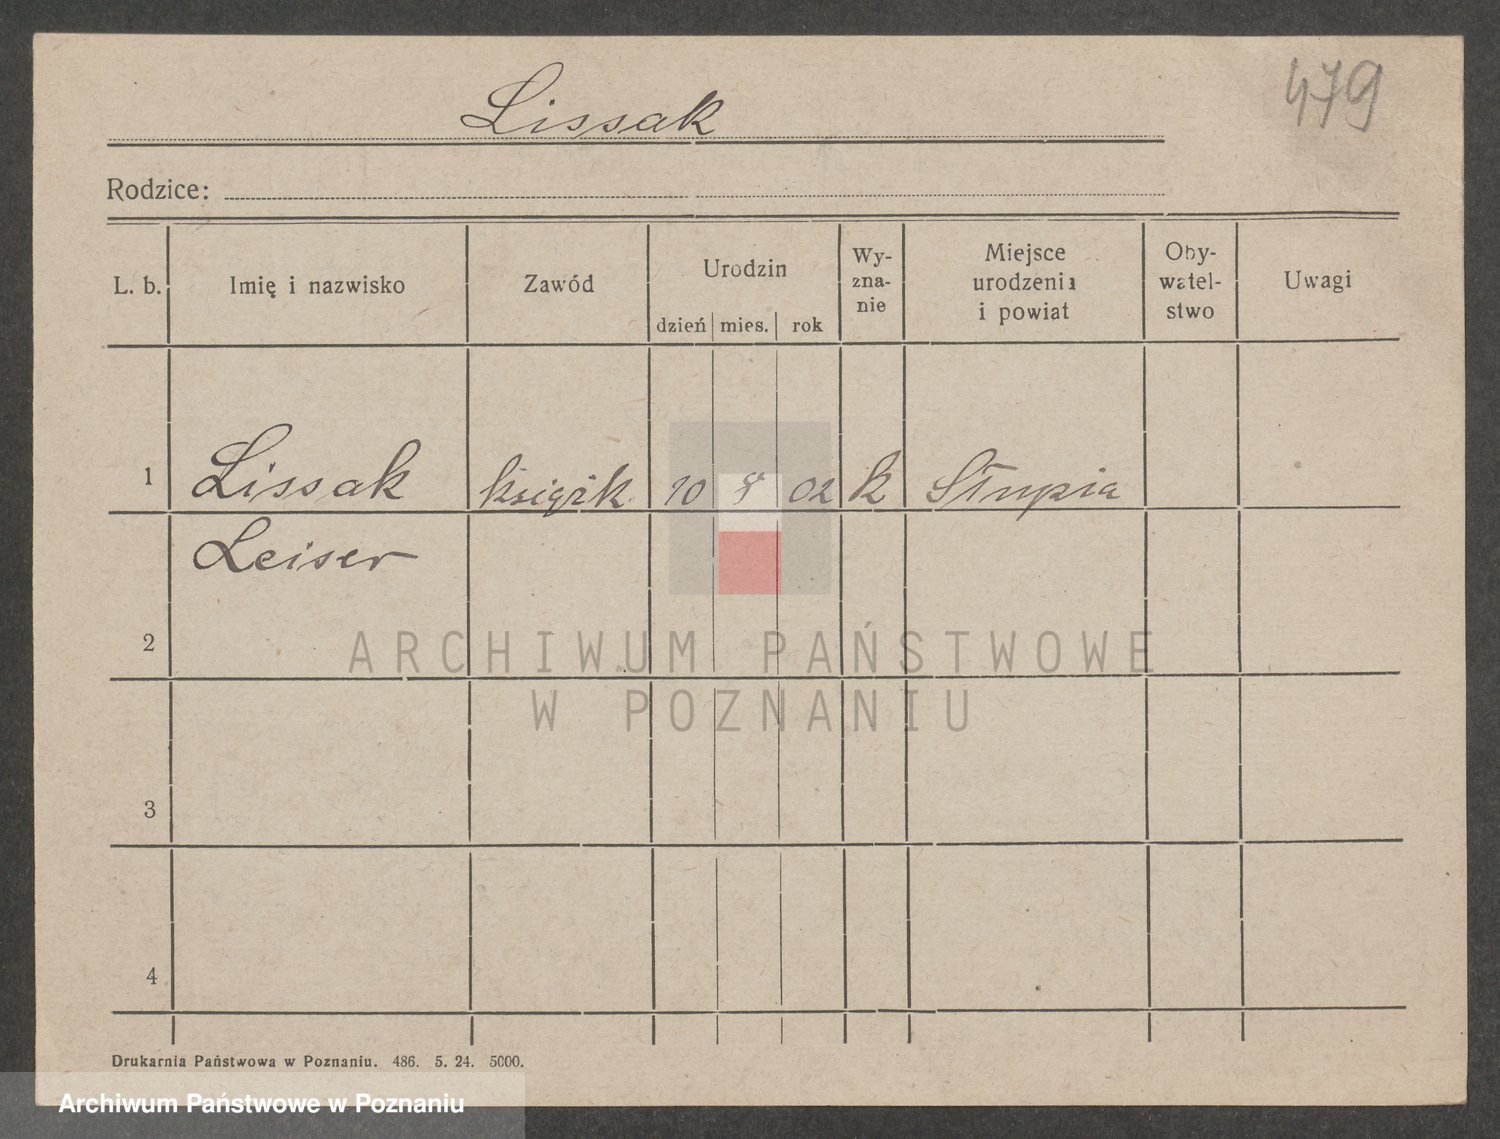 479
Lissak
Rodzice:
L. b. Imię i nazwisko Zawód Urodzin dzień mies. rok Wy-zna-nie Miejsce urodzenia i powiat Oby-watel-stwo Uwagi
1 Lissak 10 8 02 Słupia
Leiser
2
3
4
Drukarnia Państwowa w Poznaniu. 486. 5. 24. 5000.
ARCHIWUM PAŃSTWOWE
W POZNANIU
Archiwum Państwowe w Poznaniu